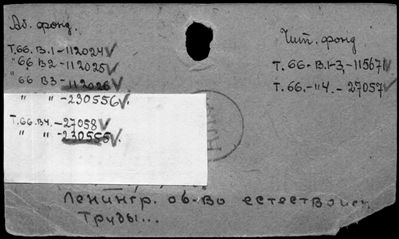 Аб. фонд.
Т.66.В.1-112024√
" 66 В2-112025√
" 66 В3-112026√
" " -230556√.
Т.66.В4.-27058√
" " -230555√.
Чит. фонд
Т. 66.-В.1-3,-11567√
Т. 66.-"4.-27057√
Ленингр. об-во естествоисп
Труды...